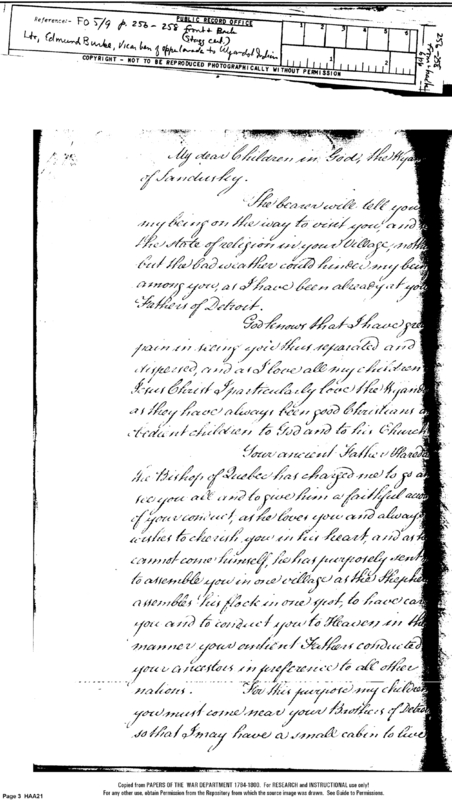 Reference:- FO 5/9 p. 256-258 front & Back
PUBLIC RECORD OFFICE
Ltr, Edmund Burke, Vicar Gen of upper Canada to Wyandot Indians
COPYRIGHT - NOT TO BE REPRODUCED PHOTOGRAPHICALLY WITHOUT PERMISSION
1 2 3 4 5 6
1 2
256-258
My dear Children in God, the Wyan
of Sandusky.
The bearer will tell you
my being on the way to visit you, and
the state of religion in your Village, noth
but the bad weather could hinder my bein
among you, as I have been already at yo
Fathers of Detroit.
God knows that I have gre
pain in seeing you thus separated and
dispersed, and as I love all my children
Jesus Christ I particularly love the Wyand
as they have always been good Christians
bedient children to God and to his Church
Your ancient Father
the Bishop of Quebec has charged me to go an
see you all and to give him a faithful acco
of your conduct, as he loves you and always
wishes to cherish you in his heart, and as h
cannot come himself, he has purposely sent
to assemble you in one village as the Sheph
assembles his flock in one spot, to have ca
you and to conduct you to Heaven in th
manner your ancient Fathers conducted
your ancestors in preference to all other
nations. For this purpose my children
you must come near your Brothers of Detroi
so that I may have a small cabin to live
Copied from PAPERS OF THE WAR DEPARTMENT 1784-1800. For RESEARCH and INSTRUCTIONAL use only!
For any other use, obtain Permission from the Repository from which the source image was drawn. See Guide to Permissions.
Page 3 HAA21